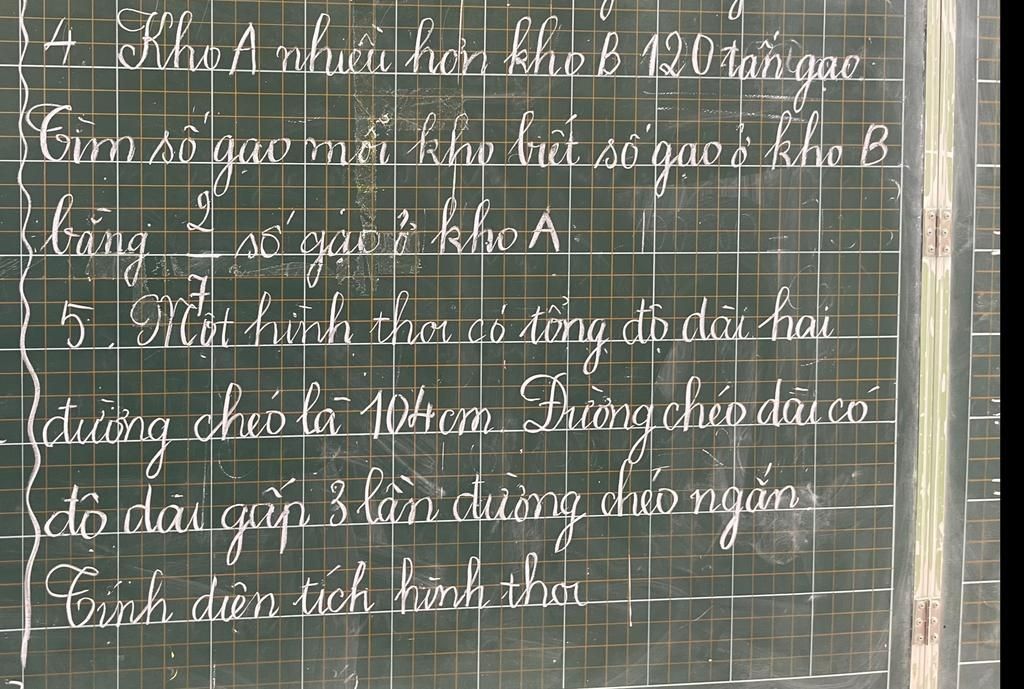 4. Kho A nhiều hơn kho B 120 tấn gạo
Tìm số gạo mỗi kho biết số gạo ở kho B
bằng 2/7 số gạo ở kho A
5. Một hình thoi có tổng độ dài hai
đường chéo là 104cm. Đường chéo dài có
độ dài gấp 3 lần đường chéo ngắn.
Tính diện tích hình thoi